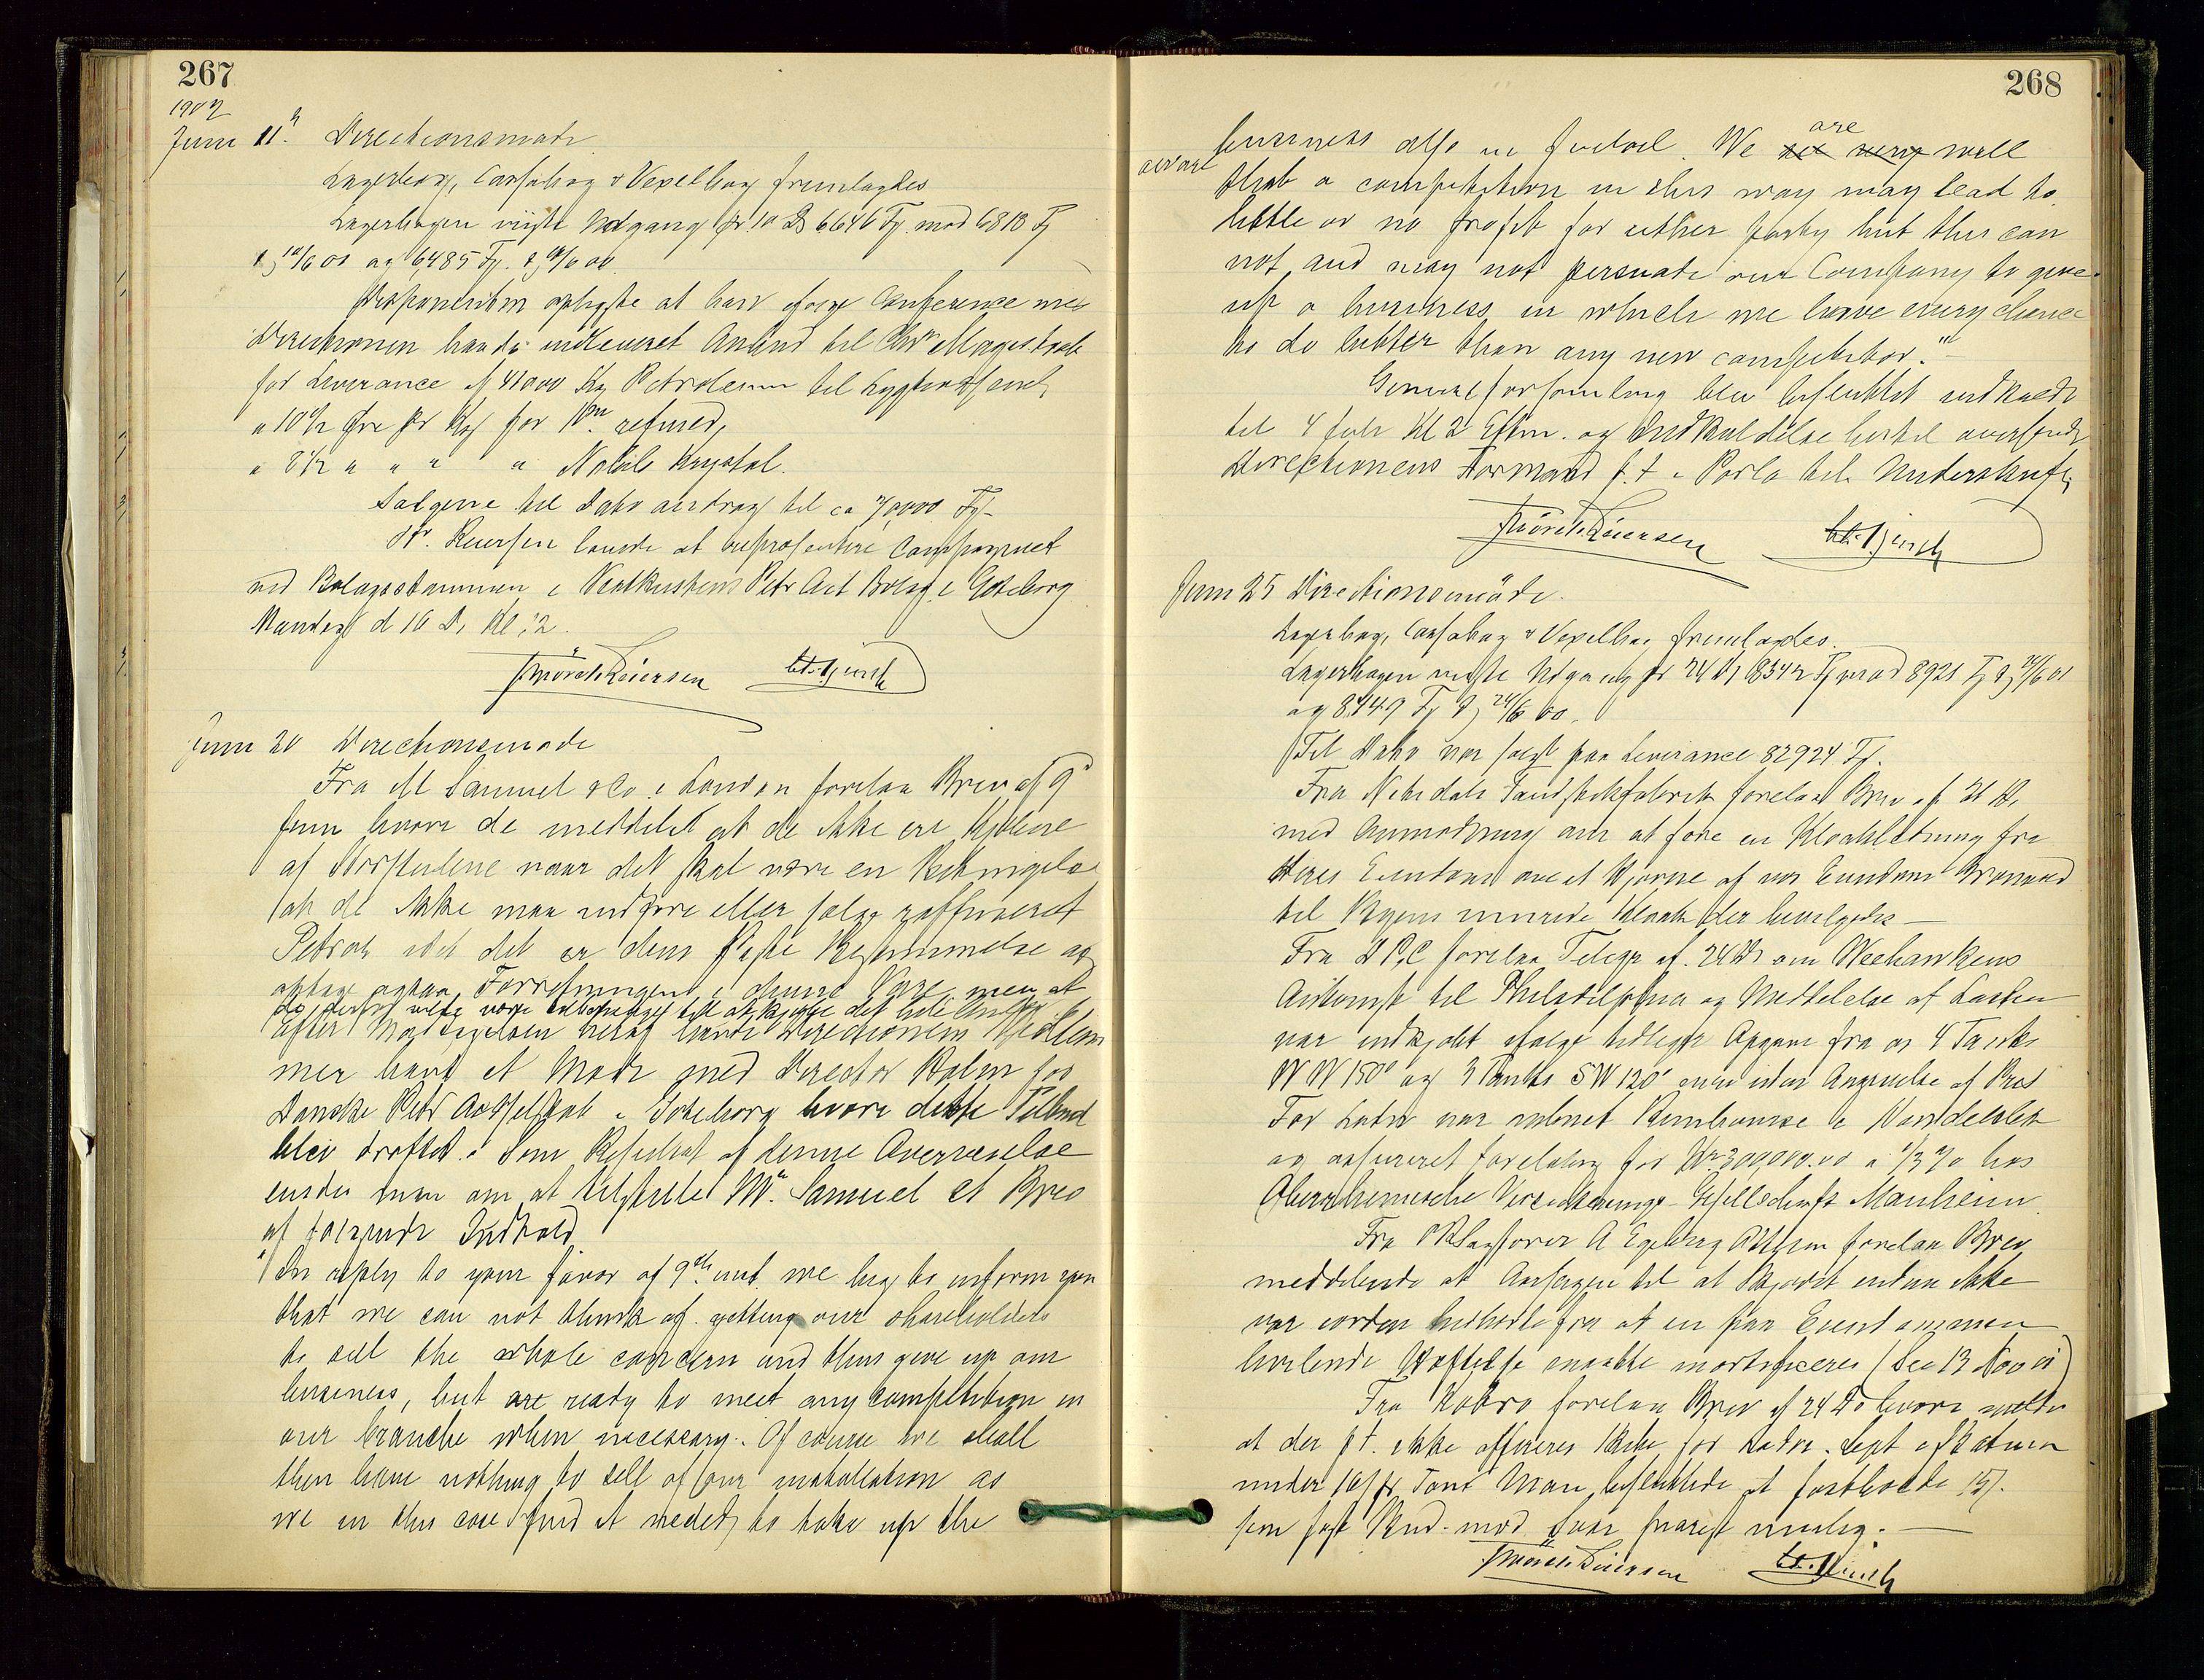 267
1902
Juni 11. Directionsmøde
Lagerbog, Cassabog & Vexelbog fremlagdes
Lagerbogen viiste Udgang pr. 10 Ds 6646 Fg. mod 6813 Fg
10/6 01 og 6485 Fg. 10/6 00
Disponenten oplyste at have ifølge Conference med
Directionen havde indleveret Anbud til Magistrat
for Leverance af 41000 Kg Petroleum til
a 10½ Øre pr Kg for refined,
" 8½ " " " " Nobels Krystal.
Salgene til Dato androg til ca 70,000 Fg.
Hr. lovede at repræsentere Compagniet
ved Bolagsstämman i Vestkustens Petr Act Bolag i Göteborg
Mandag d 16 Ds Kl. 12.
Juni 20 Directionsmøde
Fra M Samuel & Co i London forelaa Brev af 9
Juni hvori de meddelt at de ikke ere Kjøbere
af naar det skal være en Betingelse
at de ikke maa indføre eller sælge raffineret
Petrol idet det er dens faste Bestemmelse at
optage Forretningen i denne Vare, men at
de derfor vilde være til at kjøbe det hele
efter Modtagelsen heraf havde Directionens Medlem-
mer havt et Møde med Director Holm for
Danske Petr A Selskab i Göteborg hvori dette Tilbud
blev drøftet. Som Resultat af denne Overveielse
enedes man om at tilstille Mr. Samuel et Brev
af følgende Indhold
"In reply to your favor of 9th inst we beg to inform you
that we can not think of getting our shareholders
to sell the whole concern and thus give up our
business, but are ready to meet any competition in
our branche when necessary. Of course we shall
then have nothing to sell of our installation as
we in this case find it needed to take up the
268
business also in fueloil. We are well
aware
that a competition in this way may lead to
little or no profit for either party but this can
not and may not persuade our Company to give
up a business in which we have every chance
to do better than any new competitor."
Generalforsamling blev besluttet indkaldt
til 4 Juli Kl 2 Eftm. og Indkaldelse hertil oversendt
Directionens Formand p.t. i Porla til Underskrift.
Juni 25 Directionsmøde.
Lagerbog, Cassabog & Vexelbog fremlagdes.
Lagerbogen viste Udgang pr 24 Ds 8342 Fg mod 8921 Fg 24/6 01
og 8449 Fg 24/6 00.
Til Dato var solgt paa Leverance 82924 Fg.
Fra Tændstikfabrik forelaa Brev af 21 Ds
med Anmodning om at føre en Kloakledning fra
deres Eiendom over et Hjørne af vor Eiendom
til Byens murede Kloak der bevilgedes —
Fra D P C forelaa Telegr af. 24 Ds om Weehawkens
Ankomst til Philadelphia og Meddelelse at Lasten
var indkjøbt ifølge tidligere Opgave fra os 4 Tanks
W W 150° og 3 Tanks SW 120° men uden Angivelse af Pris
For Lasten var aabnet Remburse i Handelsbk
og assureret foreløbig for Kr 300,000.00 a 1/3 % hos
Oberrheinische Versicherungs-Gesellschaft Manheim.
Fra Sagfører A forelaa Brev
meddelende at til at Skjødet endnu ikke
var var at en paa Eiendommen
hvilende Hæftelse maatte mortificeres (See 13 Nov 01)
Fra Hobro forelaa Brev af 24 Ds hvori meldes
at der p t. ikke offereres Skibe for Ladn. Sept
under 16/ pr Tons Man besluttede at fastholde 15/.
som fast Bud mod Svar snarest mulig. —